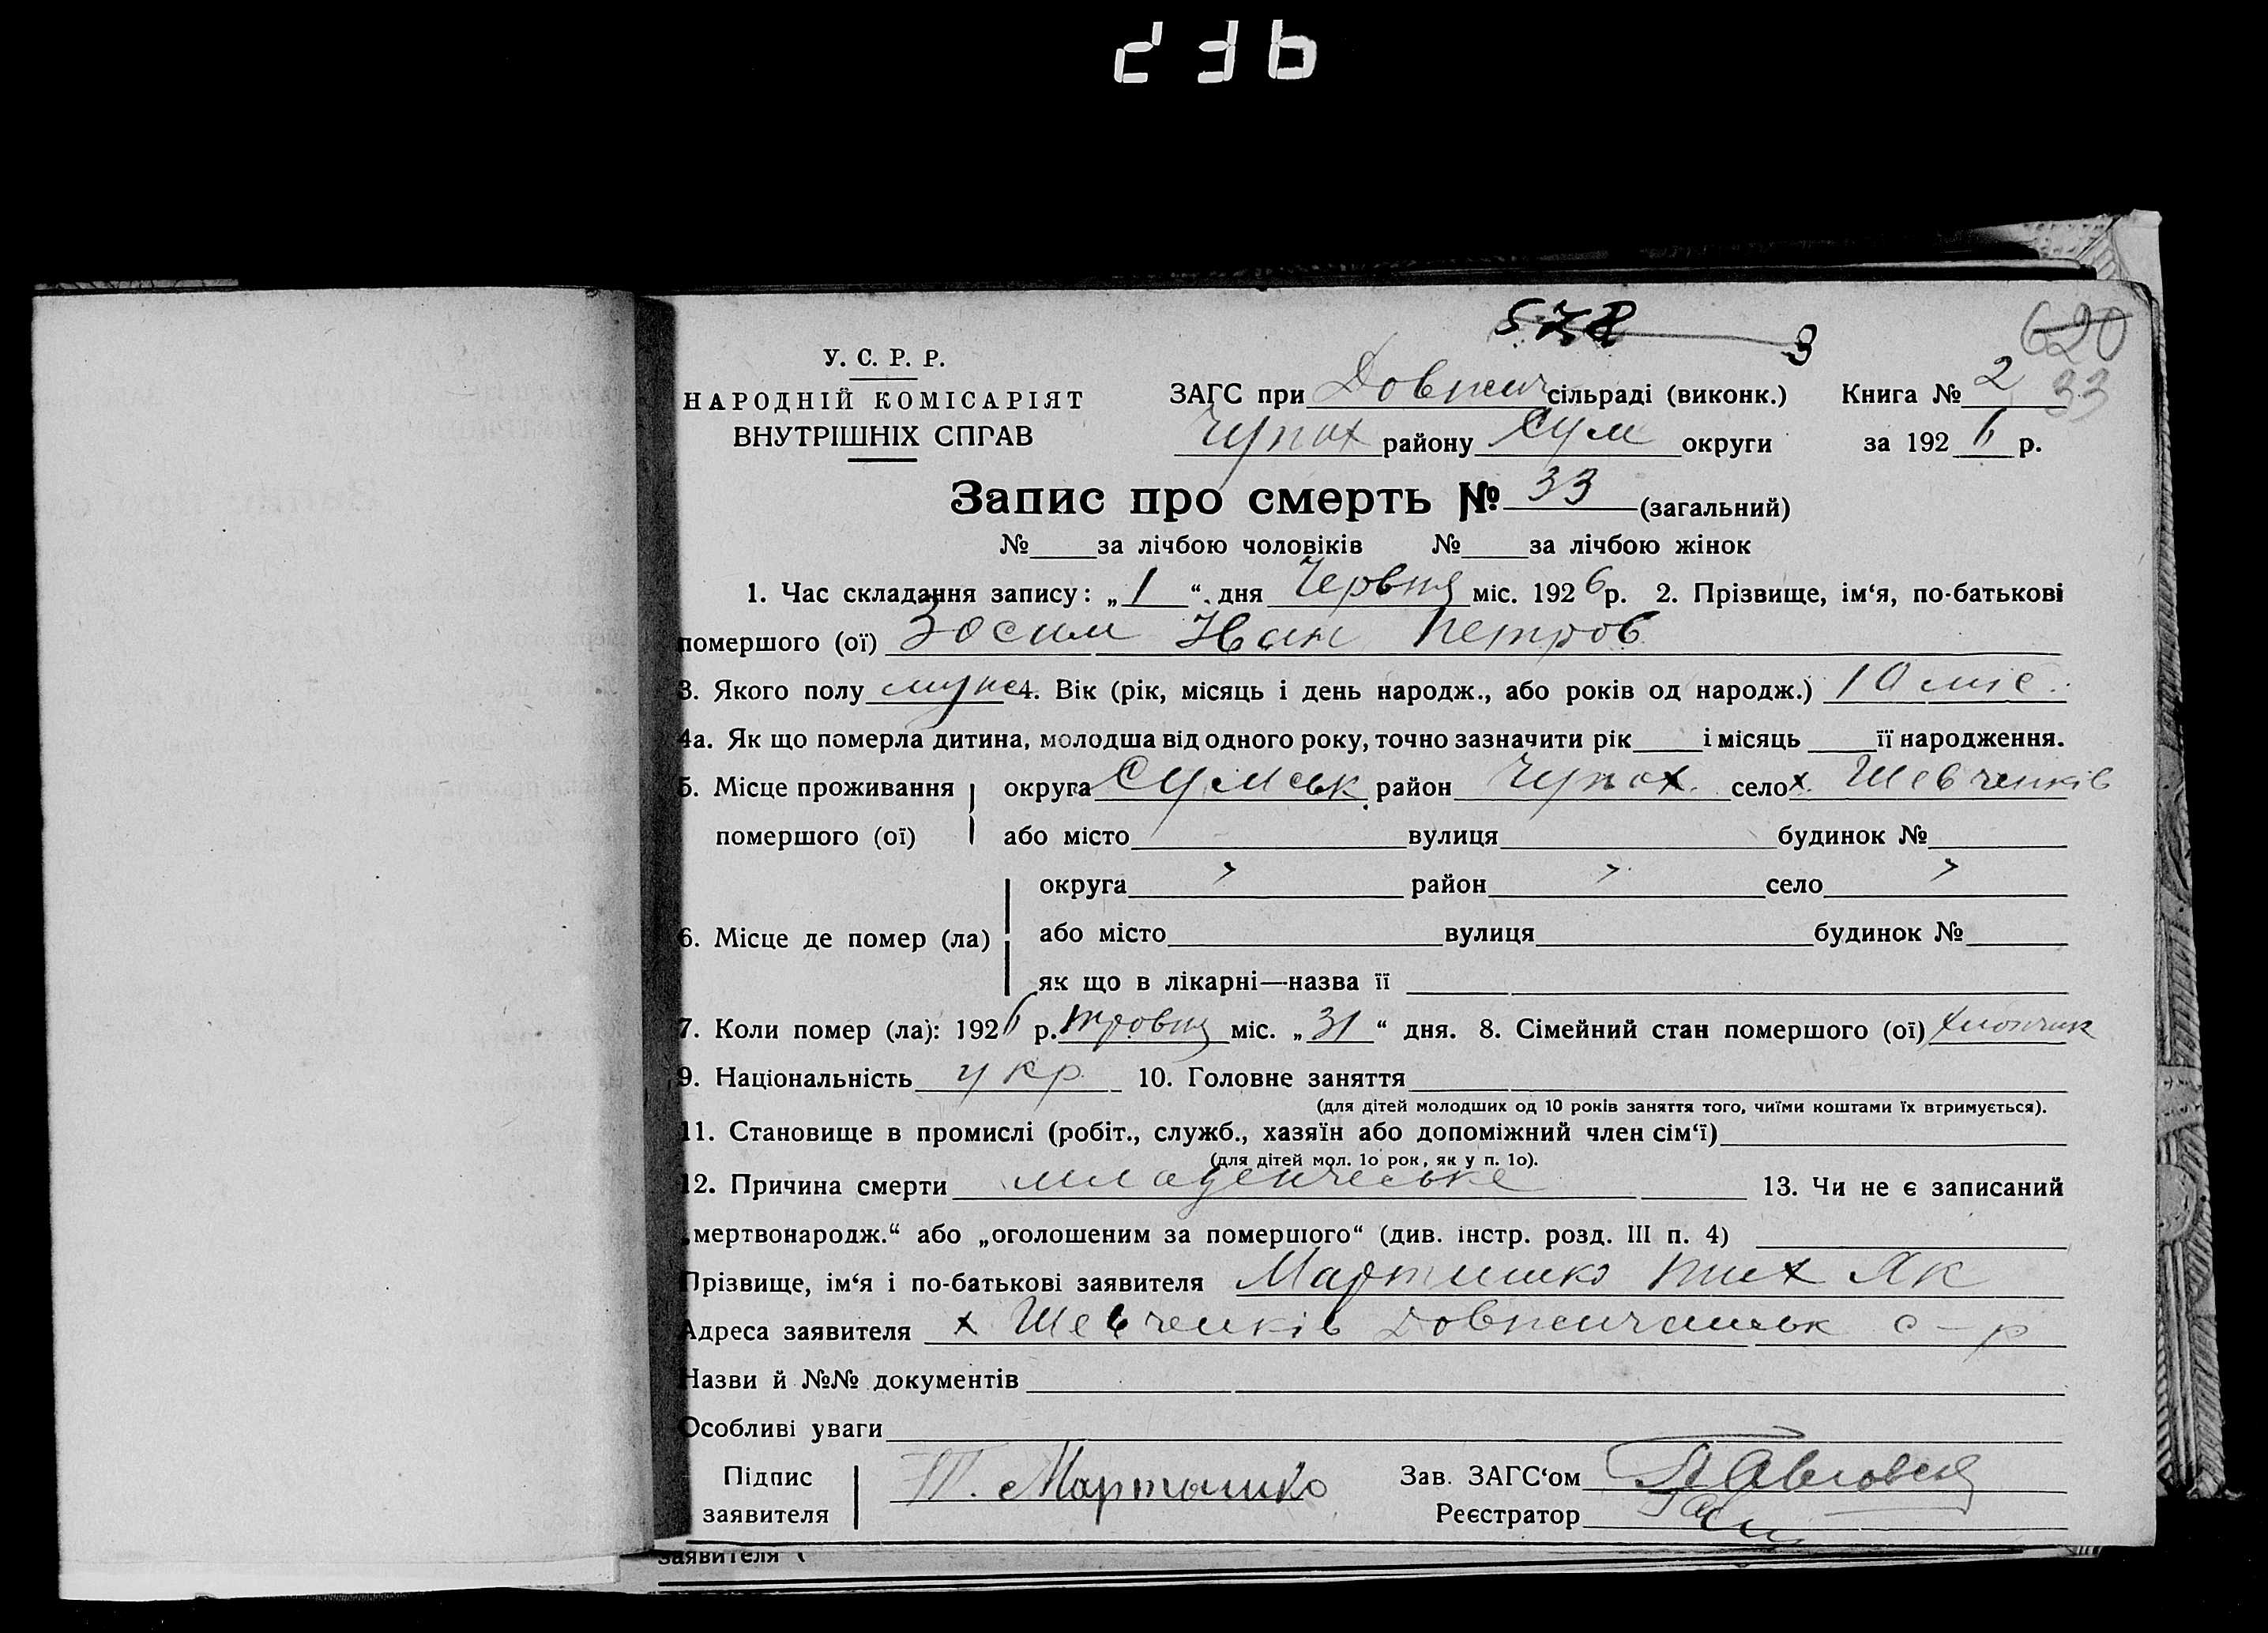 236
578 3
620
У. С. Р. Р.
НАРОДНІЙ КОМІСАРІЯТ
ВНУТРІШНІХ СПРАВ
ЗАГС при Довжич сільраді (виконк.) Книга № 2 33
Чупах району Сум округи за 1926 р.
Запис про смерть № 33 (загальний)
№ за лічбою чоловіків № за лічбою жінок
1. Час складання запису: „1“ дня Червня міс. 1926 р. 2. Прізвище, ім‘я, по-батькові
помершого (ої) Зосим Иван Петров
3. Якого полу муж 4. Вік (рік, місяць і день народж., або років од народж.) 10 міс.
4а. Як що померла дитина, молодша від одного року, точно зазначити рік і місяць її народження.
5. Місце проживання округа Сумськ район Чупах. село х. Шевченків
помершого (ої) або місто вулиця будинок №
округа район село
6. Місце де помер (ла) або місто вулиця будинок №
як що в лікарні—назва її
7. Коли помер (ла): 1926 р. травня міс. „31“ дня. 8. Сімейний стан помершого (ої) хлопчик
9. Національність укр 10. Головне заняття
(для дітей молодших од 10 років заняття того, чиїми коштами їх втримується).
11. Становище в промислі (робіт., служб., хазяїн або допоміжний член сім‘ї)
(для дітей мол. 1о рок, як у п. 1о).
12. Причина смерти младенческе 13. Чи не є записаний
„мертвонародж.“ або „оголошеним за помершого“ (див. інстр. розд. III п. 4)
Прізвище, ім‘я і по-батькові заявителя Мартишко Тих Як
Адреса заявителя х Шевченків Довжичанськ с-р
Назви й №№ документів
Особливі уваги
Підпис Т. Мартышко Зав. ЗАГС‘ом
заявителя Реєстратор
заявителя